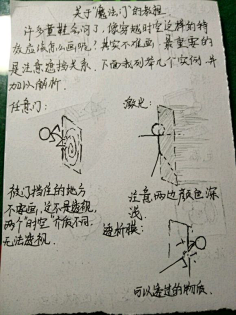 关于"魔法门"的教程
许多童鞋会问了，像穿越时空这样的特
效应该怎么画呢？其实不难画，最重要的
是注意遮挡关系，下面我列举几个实例，并
加以解析．
任意门：
激光：
被门挡住的地方
不画，这不是透视，
两个"时空"介质不同，
无法透视．
注意两边颜色深
浅．
透析膜：
可以透过的物质．